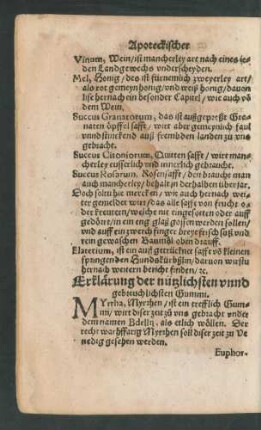 Apoteckischer
Vinum, Wein/ ist mancherley art nach eines je-
den Landgewechs vnderscheyden.
Mel, Honig/ des ist fürnemlich zweyerley art/
als rot gemeyn honig/ vnd weiß honig/ dauon
lise hernach ein besonder Capitel/ wie auch vō
dem Wein.
Succus Granatorum, das ist außgepreßt Gra-
naten öpffel safft/ wirt aber gemeynlich faul
vnnd stinckend auß frembden landen zu vns
gebracht.
Succus Citoniorum, Quitten safft/ wirt man-
cherley eusserlich vnd innerlich gebraucht.
Succus Rosarum, Rosensafft/ den braucht man
auch mancherley/ behalt jn derhalben über jar.
Doch solt hie mercken/ wie auch hernach wei-
ter gemeldet wirt/ das alle safft von frucht o-
der kreuttern/ welche nit eingesotten oder auff
gedörrt/ in ein eng glaß gossen werden sollen/
vnd auff ein zwerch finger
vnd rein gewaschen Baumöl oben drauff.
Elaterium, ist ein getrückneter safft võ kleinen
springenden Hundskürbßlin/ daruon wirstu
hernach weitern bericht finden/ ꝛc.
Erklärung der nützlichsten vnnd
gebreuchlichsten Gummi.
Myrrha, Myrrhen/ ist ein trefflich Gum-
mi/ wirt diser zeit zu vns gebracht vnder
dem namen Bdelij, als etlich wöllen. Der
recht warhfftig Myrrhen soll diser zeit zu Ve-
nedig gesehen werden.
Euphor-